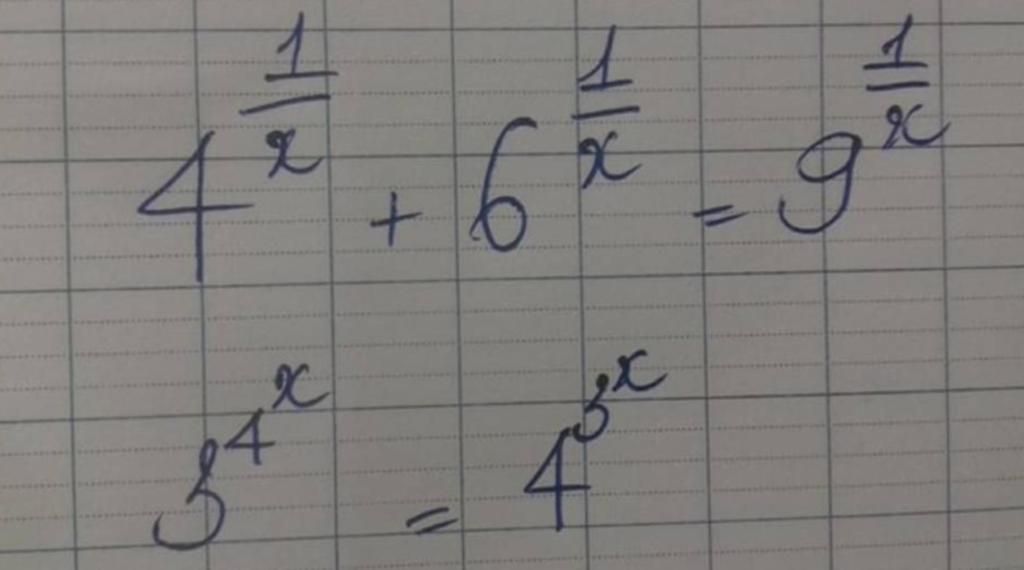 4^{\frac{1}{x}} + 6^{\frac{1}{x}} = 9^{\frac{1}{x}}
3^{4^{x}} = 4^{3^{x}}